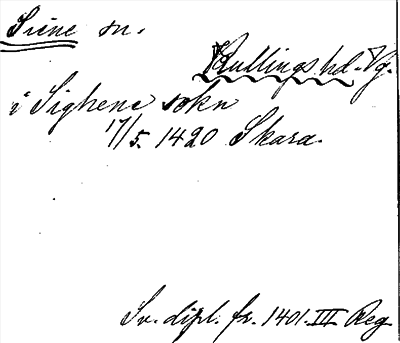 Sune sn.
Kullings hd. Vg.
i Sighene sokn
17/5. 1420 Skara.
Sv. dipl. fr. 1401. III Reg